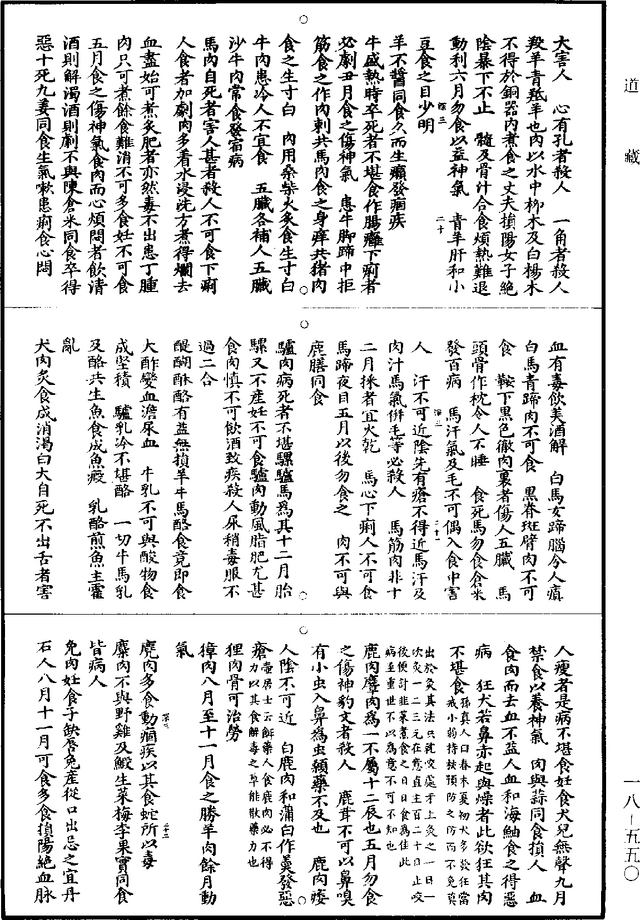 道藏
大害人　心有孔者殺人　一角者殺人
羖羊青羝羊也肉以水中柳木及白楊木
不得於銅器內煮食之丈夫損陽女子絕
陰暴下不止　髓及骨計合食煩熱難退
動利六月勿食以益神氣　青羊肝和小
豆食之目少明
羊不醬同食久而生癩發痼疾
牛盛熱時卒死者不堪食作腸癰下痢者
必劇丑月食之傷神氣　患牛脚蹄中拒
筋食之作肉刺共馬肉食之身痒共猪肉
食之生寸白　肉用桑柴火炙食生寸白
牛肉患冷人不宜食　五臟各補人五臟
沙牛肉常食發宿病
馬肉自死者害人甚者殺人不可食下痢
人食者加劇肉多着水浸洗方煮得爛去
血盡始可煮炙肥者亦然毒不出患丁腫
肉只可煮餘食難消不可多食妊不可食
五月食之傷神氣食肉而心煩悶者飲清
酒則解濁酒則劇不與陳倉米同食卒得
惡十死九薑同食生氣嗽患痢食心悶
血有毒飲美酒解　白馬玄蹄腦令人癲
白馬青蹄肉不可食　黑脊斑臂肉不可
食　鞍下黑色徹肉裏者傷人五臟　馬
頭骨作枕令人不睡　食死馬勿食倉米
發百病　馬汗氣及毛不可偶入食中害
人　汗不可近陰先有瘡不得近馬汗及
肉汁馬氣併毛等必殺人　馬筋肉非十
二月採者宜火乾　馬心下痢人不可食
馬蹄夜目五月以後勿食之　肉不可與
鹿膳同食
驢肉病死者不堪騾驢馬爲其十二月胎
騾又不産妊不可食驢肉動風脂肥尤甚
食肉慎不可飲酒致疾殺人尿稍毒服不
過二合
醍醐酥酪有益無損羊牛馬酪食竟即食
大酢變血澹尿血　牛乳不可與酸物食
成堅積　驢乳冷不堪酪　一切牛馬乳
及酪共生魚食成魚瘕　乳酪煎魚主霍
亂
犬肉炙食成消渴曰犬自死不出舌者害
人瘦者是病不堪食妊食犬兒無聲九月
禁食以養神氣　肉與蒜同食損人　血
食肉而去血不益人血和海鮋食之得惡
病　狂犬若鼻赤起與燥者此欲狂其肉
不堪食
鹿肉麞肉爲一不屬十二辰也五月勿食
之傷神豹文者殺人　鹿茸不可以鼻嗅
有小蟲入鼻爲蟲顙藥不及也　鹿肉痿
人陰不可近　白鹿肉和蒲白作羹發惡
瘡
狸肉骨可治勞
獐肉八月至十一月食之勝羊肉餘月動
氣
麂肉多食動痼疾以其食蛇所以毒
麋肉不與野雞及鰕生菜梅李果實同食
皆病人
兔肉妊食子缺脣兔産從口出忌之宜丹
石人八月十一月可食多食損陽絕血脉
一八－五五〇